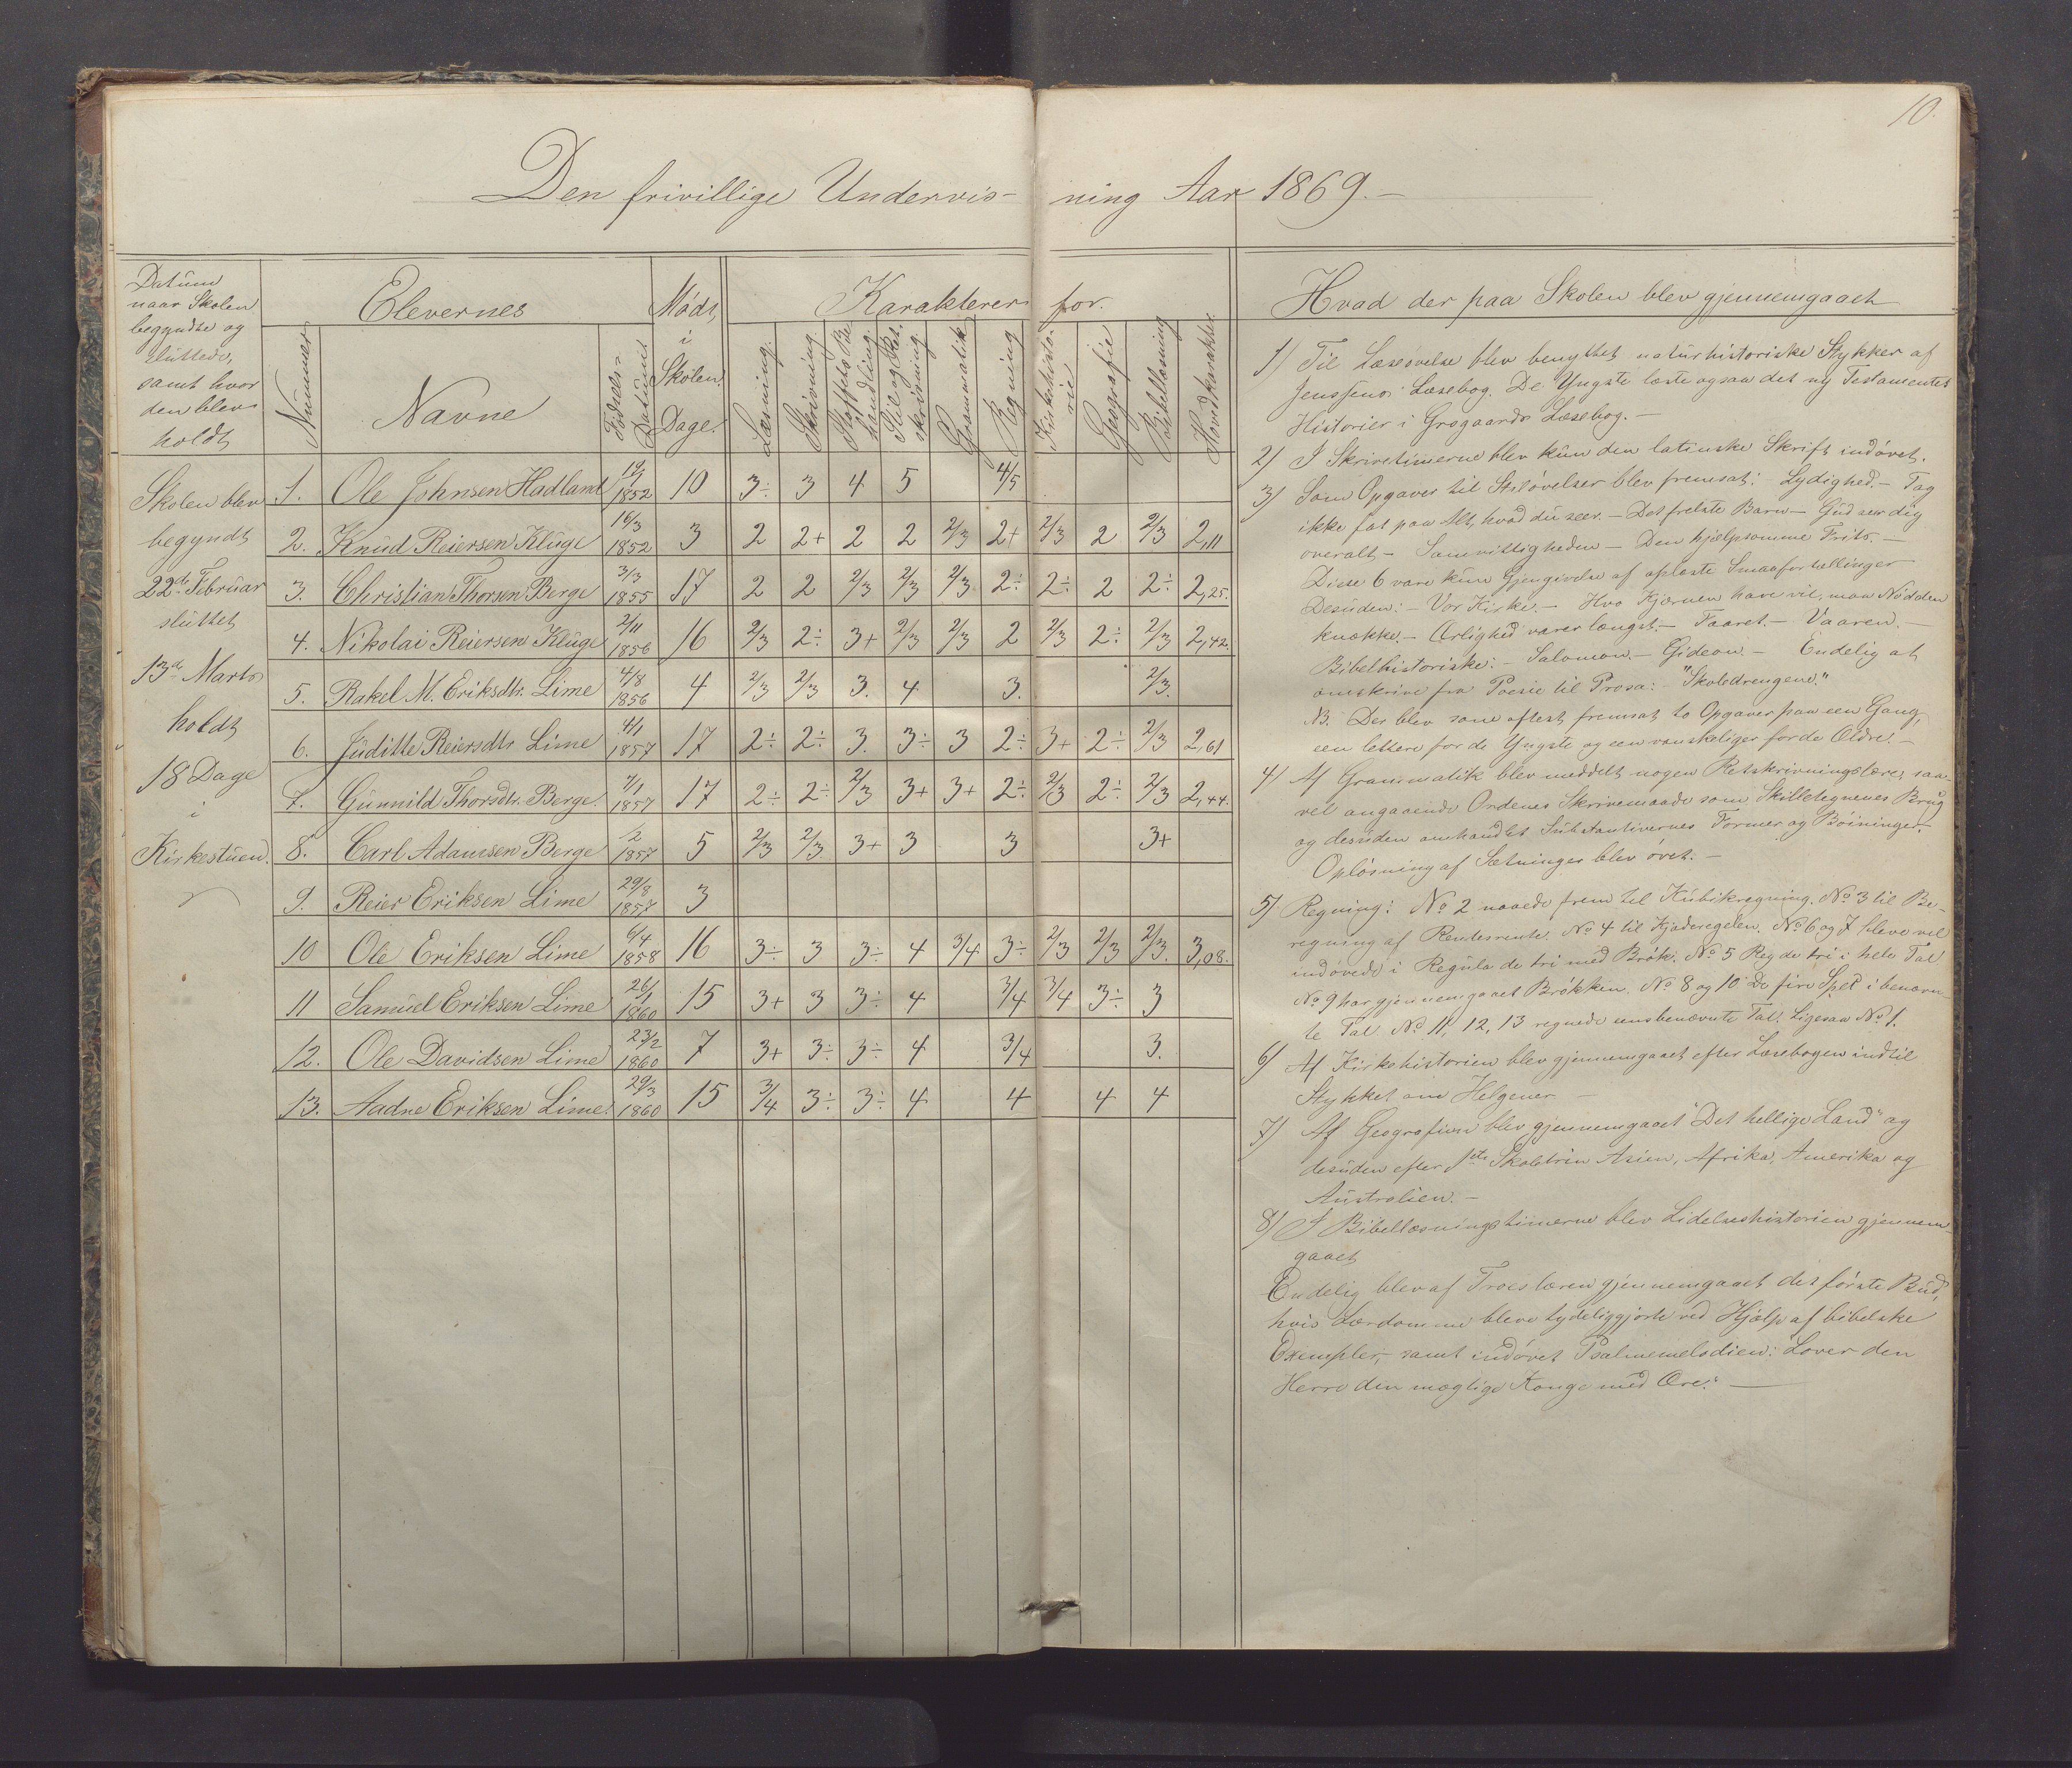 10.
Den frivillige Undervis- ning Aar 1869.-
Datum
naar Skolen
begyndte og
sluttede,
samt hvor
den blev
holdt
Elevernes
Nummer
Navne
Fødsels-
Datum
Mødt
i
Skolen.
Dage.
Karakterer for.
Læsning.
Skrivning.
Stoffets Be-
handling.
Stil og Ret-
skrivning.
Grammatik
Regning
Kirkehisto-
rie
Geografie
Bibellæsning
Hovedkarakter.
Hvad der paa Skolen blev gjennemgaaet
Skolen blev
begyndt
22de Februar
sluttet
13de Marts
holdt
18 Dage
i
Kirkestuen.
1. Ole Johnsen Hadland 19/1 1852 10 3÷ 3 4 5 4/5
2. Knud Reiersen Kluge 16/3 1852 3 2 2+ 2 2 2/3 2+ 2/3 2 2/3 2,11
3. Christian Thorsen Berge 3/3 1855 17 2 2 2/3 2/3 2/3 2÷ 2÷ 2 2÷ 2,25.
4. Nikolai Reiersen Kluge 2/11 1856 16 2/3 2÷ 3+ 2/3 2/3 2 2/3 2÷ 2/3 2,42.
5. Rakel M. Eriksdtr. Lime 4/8 1856 4 2/3 2/3 3. 4 3. 2/3.
6. Juditte Reiersdtr Lime 4/1 1857 17 2÷ 2÷ 3. 3÷ 3 2÷ 3+ 2÷ 2/3 2,61
7. Gunnild Thorsdtr. Berge. 7/1 1857 17 2÷ 2÷ 2/3 3+ 3+ 2÷ 2/3 2÷ 2/3 2,44.
8. Carl Adamsen Berge /2 1857 5 2/3 2/3 3+ 3 3 3+
9. Reier Eriksen Lime 29/8 1857 3
10 Ole Eriksen Lime 6/4 1858 16 3÷ 3 3÷ 4 3/4 3÷ 2/3 2/3 2/3. 3,08.
11 Samuel Eriksen Lime 26/1 1860 15 3+ 3 3÷ 4 3/4 3/4 3÷ 3
12. Ole Davidsen Lime 23/2 1860 7 3+ 3÷ 3÷ 4 3/4 3.
13. Aadne Eriksen Lime. 29/3 1860 15 3/4 3÷ 3÷ 4 4 4 4
1) Til Læseøvelse blev benyttet naturhistoriske Stykker af
Jenssens Læsebog. De Yngste læste ogsaa det ny Testamentes
Historier i Grøgaards Læsebog.-
2) I Skrivetimerne blev kun den latinske Skrift indøvet.
3) Som Opgaver til Stiløvelser blev fremsat: Lydighed.- Tag
ikke fat paa Alt, hvad du seer.- Det frelste Barn- Gud seer dig
overalt- Samvittigheden- Den hjælpsomme Frits.-
Disse 6 vare kun Gjengivelse af oplæste Smaafortællinger
Desuden:- Vor Kirke.- Hvo Kjærnen have vil, maa Nødden
knække.- Ærlighed varer længst.- Faaret.- Vaaren.-
Bibelhistoriske:- Salomon.- Gideon.- Endelig at
omskrive fra Poesie til Prosa:- "Skoledrengene."
NB. Der blev som oftest fremsat to Opgaver paa een Gang,
een lettere for de Yngste og een vanskeliger for de Ældre.-
4) Af Grammatik blev meddelt nogen Retskrivningslære, saa-
vel angaaende Ordenes Skrivemaade som Skilletegnenes Brug
og desuden omhandlet Substantivernes Former og Bøininger.
Opløsning af Sætninger blev øvet.-
5) Regning: No 2 naaede frem til Kubikregning. No 3 til Be-
regning af Rentesrente. No 4 til Kjæderegelen. No 6 og 7 bleve vel
indøvede i Regula de tri med Brøk. No 5 Reg de tri i hele Tal
No 9 har gjennemgaaet Brøkken. No 8 og 10 De fire Spec i benævn-
te Tal No 11, 12, 13 regnede eensbenævnte Tal. Ligesaa No 1.
6) Af Kirkehistorien blev gjennemgaaet efter Læsebogen indtil
Stykket om Helgener -
7) Af Geografien blev gjennemgaaet "Det hellige Land" og
desuden efter 1ste Skoletrin Asien, Afrika, Amerika og
Australien.-
8) I Bibellæsningstimerne blev Lidelseshistorien gjennem-
gaaet
Endelig blev af Troeslæren gjennemgaaet det første Bud,
hvis Lærdomme bleve tydeliggjorte ved Hjælp af bibelske
Exempler, samt indøvet Psalmemelodien: Lover den
Herre den mægtige Konge med Ære."-